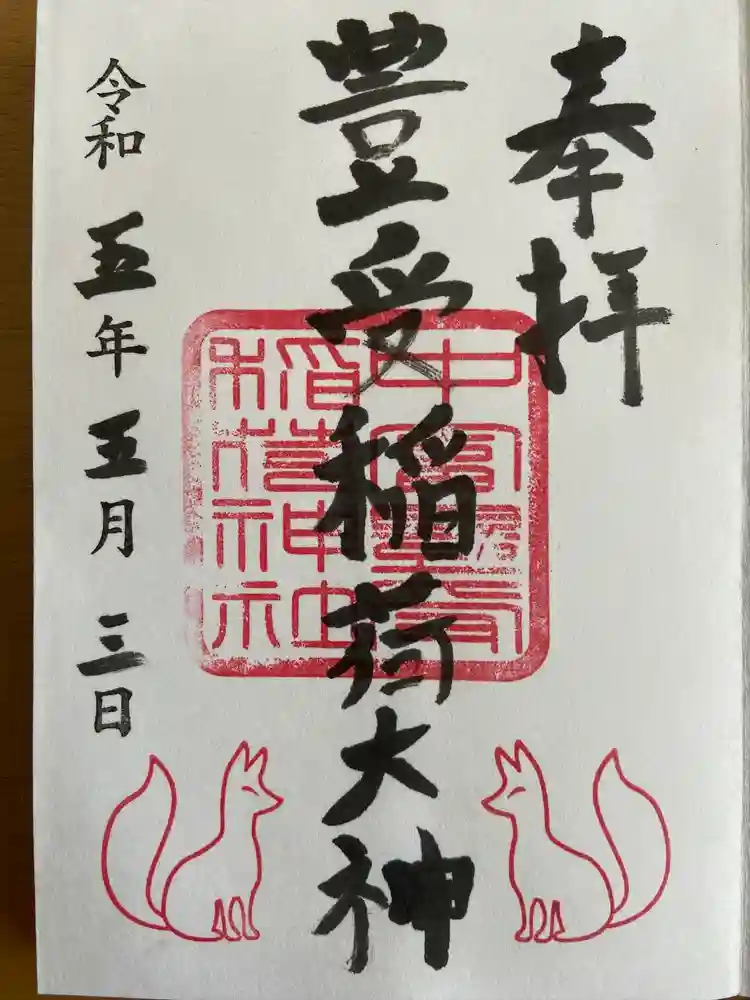 奉拝
豊受稲荷大神
稲荷神社
令和 五年 五月 三日